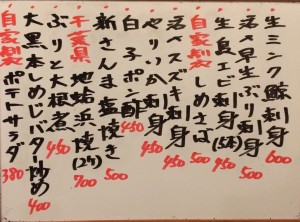 生ミンク鯨刺身 600
活〆早生ぶり刺身 500
生ぼたんエビ刺身(5本) 500
自家製しめさば 500
活〆スズキ刺身 450
やりいか刺身 450
白子ポン酢 450
新さんま塩焼き 500
千葉県 地蛤浜焼(2ケ) 700
ぶりと大根煮 450
大黒本しめじバター炒め 400
自家製ポテトサラダ 380